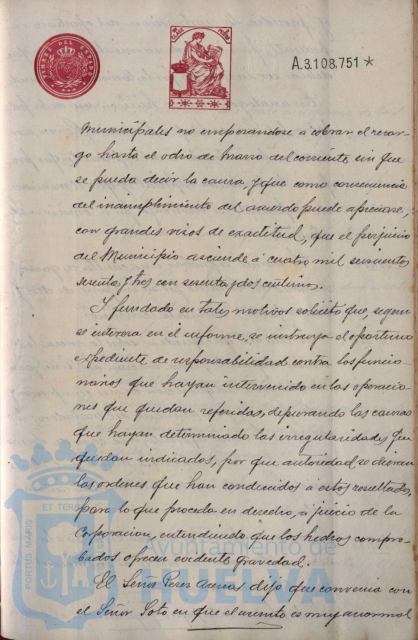 A.3.108.751*
municipales no empezandose á cobrar el recar-
go hasta el ocho de Marzo del corriente sin que
se pueda decir la causa y que como consecuencia
del incumplimiento del acuerdo puede apreciarse,
con grandes visos de exactitud, que el perjuicio
del Municipio asciende á cuatro mil seiscientas
sesenta y tres con sesenta y dos centimos.
Y fundado en tales motivos solicitó que, segun
se interesa en el informe, se instruya el oportuno
expediente de responsabilidad contra los funcio-
narios que hayan intervenido en las operacio-
nes que quedan referidas, depurando las causas
que hayan determinado las irregularidades que
quedan indicadas, por que autoridad se dieran
las ordenes que han conducido á estos resultados,
para lo que proceda en derecho, á juicio de la
Corporacion, entendiendo que los hechos compro-
bados ofrecen evidente gravedad.
El Señor Perez Arenas dijo que convenia con
el Señor Soto en que el asunto es muy anormal
PORTUS MARIS ET TERRAE
Ayuntamiento de
HUELVA